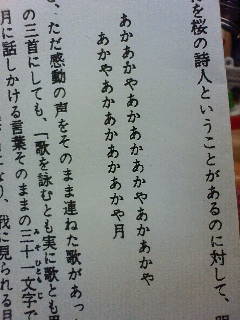 を桜の詩人ということがあるのに対して、明
あかあかやあかあかあかやあかあかや
あかやあかあかあかあかや月
、ただ感動の声をそのまま連ねた歌があっ
の三首にしても、「歌を詠むとも実に歌とも思
月に話しかける言葉そのままの三十一文字で
みそひともじ
なり、我に見られる月